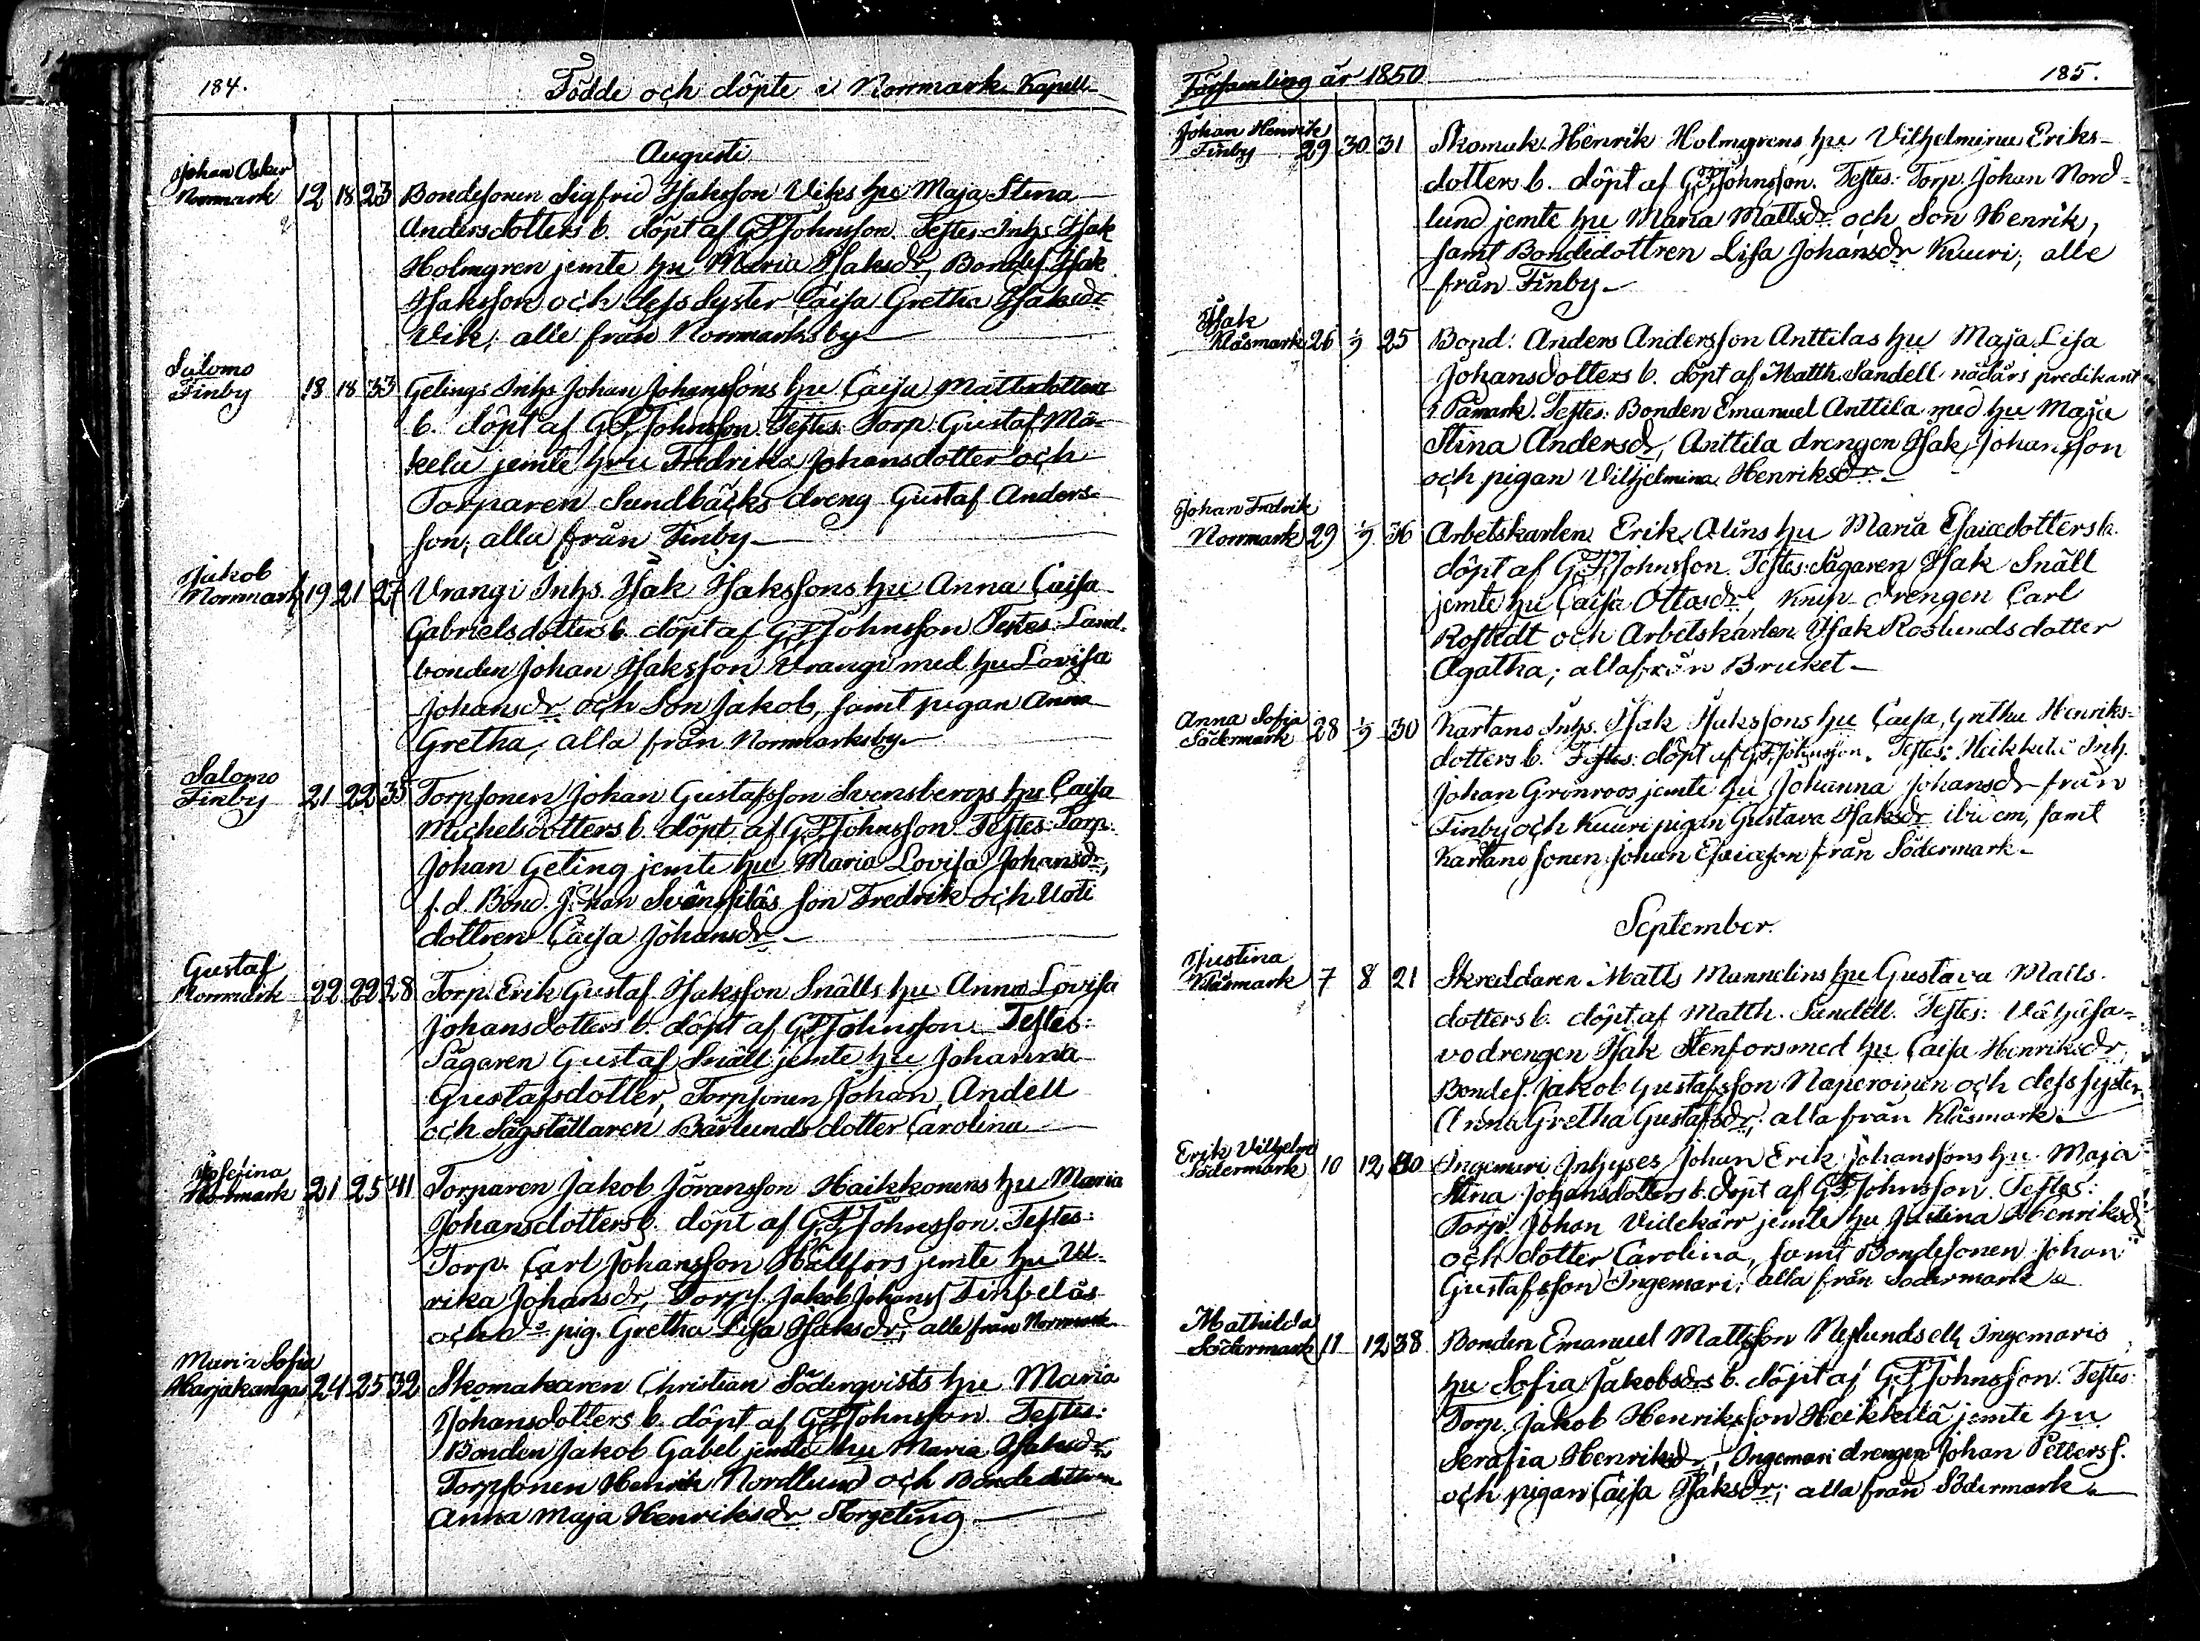 184.
Födde och döpte i Norrmark Kapell-
Augusti
Johan Oskar
Norrmark 12 18 23 Bondesonen Sigfrid Isaksson Viks hu Maja Stina
Andersdotters b. döpt af G.F. Johnsson. Testes: Inhs. Isak
Holmgren jemte hu Maria Isaksdr, Bondes. Isak
Isaksson och dess Syster Caisa Gretha Isaksdr
Vik; alle från Norrmarksby
Salomo
Finby 18 18 33 Gelings Inhs Johan Johanssons hu Caisa Mattsdotters
b. döpt af G.F. Johnsson. Testes: Torp. Gustaf Mä-
kelä jemte hru Fredrika Johansdotter och
Torparen Sundbäcks dreng Gustaf Anders-
son; alla från Finby
Jakob
Norrmark 19 21 27 Vrangi Inhs. Isak Isakssons hu Anna Caisa
Gabrielsdotters b. döpt af G.F. Johnsson Testes: Land-
bonden Johan Isaksson Vrangi med hu Lovisa
Johansdr och Son Jakob, samt pigan Anna
Gretha; alla från Norrmarksby
Salomo
Finby 21 22 35 Torpsonen Johan Gustafsson Svensbergs hu Caisa
Michelsdotters b. döpt af G.F. Johnsson. Testes: Torp.
Johan Geling jemte hu Maria Lovisa Johansdr,
f.d. Bond. Johan son Fredrik och Uoti
dottren Caisa Johansdr
Gustaf
Norrmark 22 22 28 Torp. Erik Gustaf Isaksson Snälls hu Anna Lovisa
Johansdotters b. döpt af G.F. Johnsson. Testes:
Sågaren Gustaf Snäll jemte hu Johanna
Gustafsdotter, Torpsonen Johan Andell
och Sågställaren Bärlunds dotter Carolina
Josefina
Norrmark 21 25 41 Torparen Jakob Jöransson Haikkonens hu Maria
Johansdotters b. döpt af G.F. Johnsson. Testes:
Torp. Carl Johansson Hällfors jemte hu Ul-
rika Johansdr, Torps. Jakob Johanss
och do pig. Gretha Lisa Isaksdr; alle från Norrmark
Maria Sofia
Harjakangas 24 25 32 Skomakaren Christian Söderqvists hu Maria
Johansdotters b. döpt af G.F. Johnsson. Testes:
Bonden Jakob Gabel jemte hu Maria Isaksdr,
Torpsonen Henrik Nordlund och Bondedottren
Anna Maja Henriksdr Storgeting
Församling år 1850
185.
Johan Henrik
Finby 29 30 31 Skomak. Henrik Holmgrens hu Vilhelmina Eriks-
dotters b. döpt af G.F. Johnsson. Testes: Torp. Johan Nord-
lund jemte hu Maria Mattsdr och Son Henrik,
samt Bondedottren Lisa Johansdr Kuuri; alle
från Finby
Isak
Klåsmark 26 1/9 25 Bond. Anders Andersson Anttilas hu Maja Lisa
Johansdotters b. döpt af Matth. Sandell nödårs predikant
i Påmark. Testes: Bonden Emanuel Anttila med hu Maja
Stina Andersdr, Anttila drengen Isak Johansson
och pigan Vilhelmina Henriksdr
Johan Fredrik
Norrmark 29 1/9 36 Arbetskarlen Erik Alins hu Maria Esaiædotters b.
döpt af G.F. Johnsson. Testes: Sågaren Isak Snäll
jemte hu Caisa Ottasdr, Knip-drengen Carl
Rostedt och Arbetskarlen Isak Roslunds dotter
Agatha; alla från Bruket
Anna Sofia
Södermark 28 1/9 30 Kartano Inhs. Isak Isakssons hu Caisa Gretha Henriks-
dotters b. Testes: döpt af G.F. Johnsson. Testes: Heikkilä Inh.
Johan Grönroos jemte hu Johanna Johansdr från
Finby och Kuuri pigan Gustava Isaksdr ibidem, samt
Kartano sonen Johan Esaiæson från Södermark
September.
Justina
Klåsmark 7 8 21 Skreddaren Matts Mannelins hu Gustava Matts-
dotters b. döpt af Matth. Sandell. Testes: Vähäsa-
vo drengen Isak Stenfors med hu Caisa Henriksdr,
Bondes. Jakob Gustafsson Naperoinen och dess syster
Anna Gretha Gustafsdr; alla från Klåsmark
Erik Vilhelm
Södermark 10 12 30 Ingemari Inhyses Johan Erik Johanssons hu Maja
Stina Johansdotters b. döpt af G.F. Johnsson. Testes:
Torp. Johan Videkärr jemte hu Justina Henriksdr
och dotter Carolina, samt Bondesonen Johan
Gustafsson Ingemari; alla från Södermark
Mathilda
Södermark 11 12 38 Bonden Emanuel Mattsson Neslunds ell. Ingemaris
hu Sofia Jakobsdrs b. döpt af G.F. Johnsson. Testes:
Torp. Jakob Henriksson Heikkilä jemte hu
Serafia Henriksdr, Ingemari drengen Johan Petterss.
och pigan Caisa Isaksdr; alla från Södermark